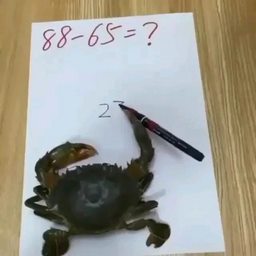 88-65=?
2